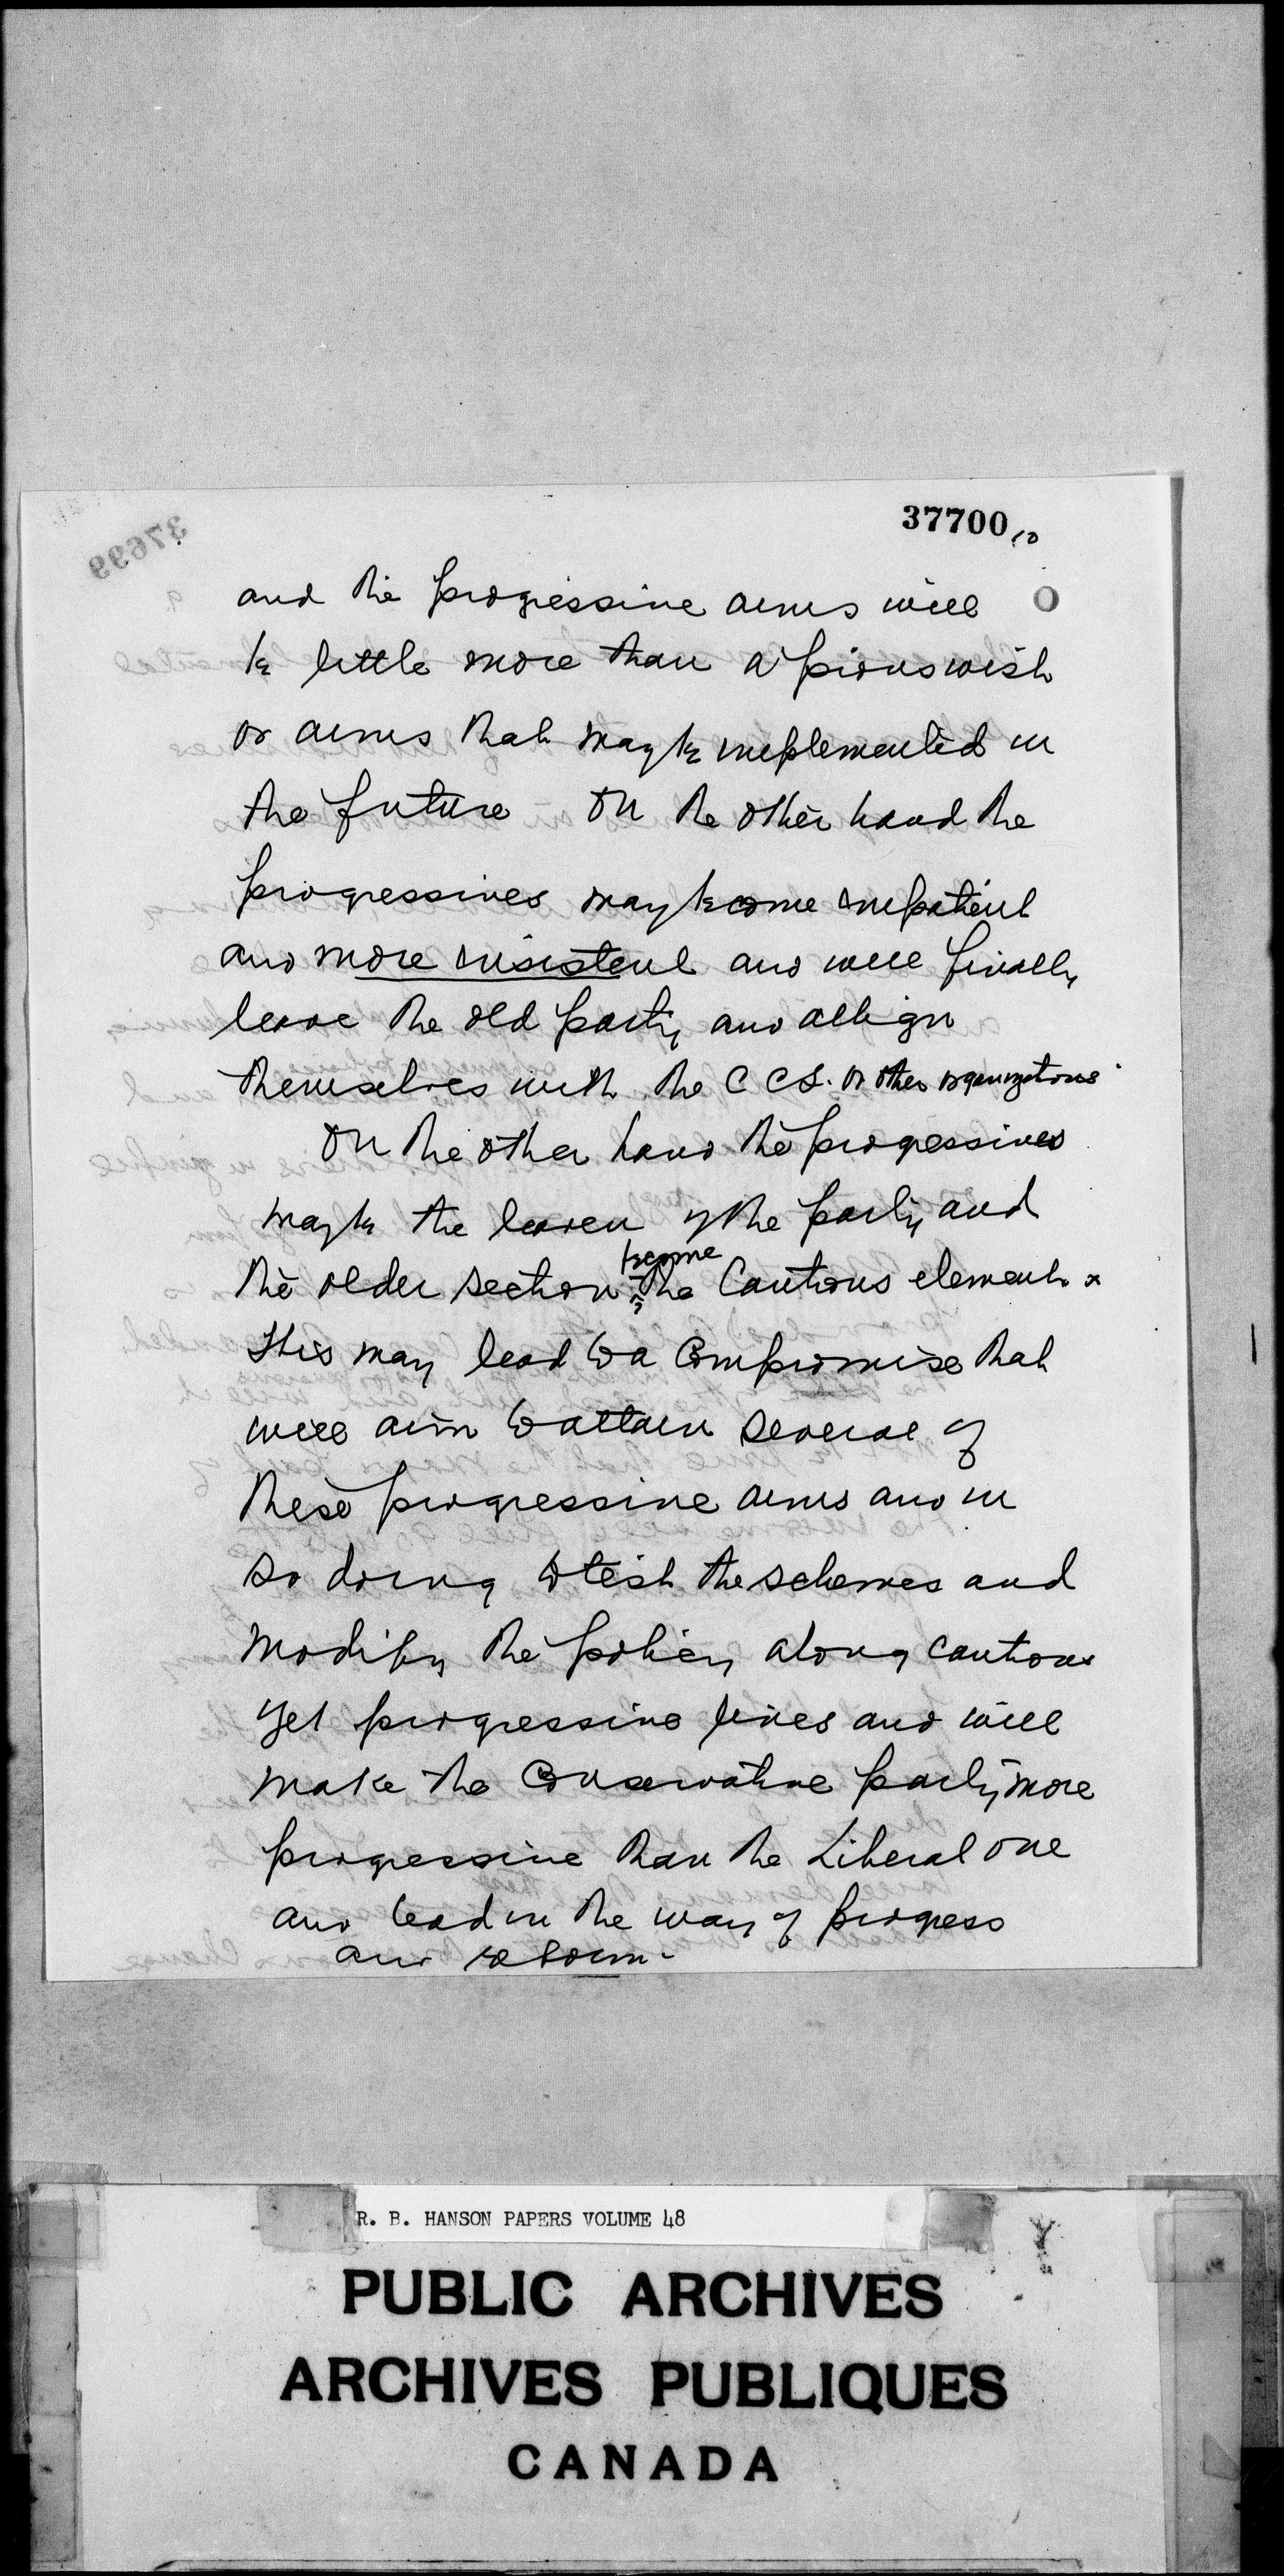 37700
10
37699
and the progressive aims will
be little more than a pious wish
or aims that may be implemented in
the future On the other hand the
progressives may become impatient
and more insistent and will finally
leave the old party and allign
themselves with the C C F. or other organizations
On the other hand the progressives
may be the leaven of the party and
become
the older section the Cautious element
This may lead to a Compromise that
will aim to attain several of
these progressive aims and in
so doing to test the schemes and
modify the policy along cautious
yet progressive lines and will
make the Conservative party more
progressive than the Liberal one
and lead in the way of progress
and reform-
R. B. HANSON PAPERS VOLUME 48
PUBLIC ARCHIVES
ARCHIVES PUBLIQUES
CANADA